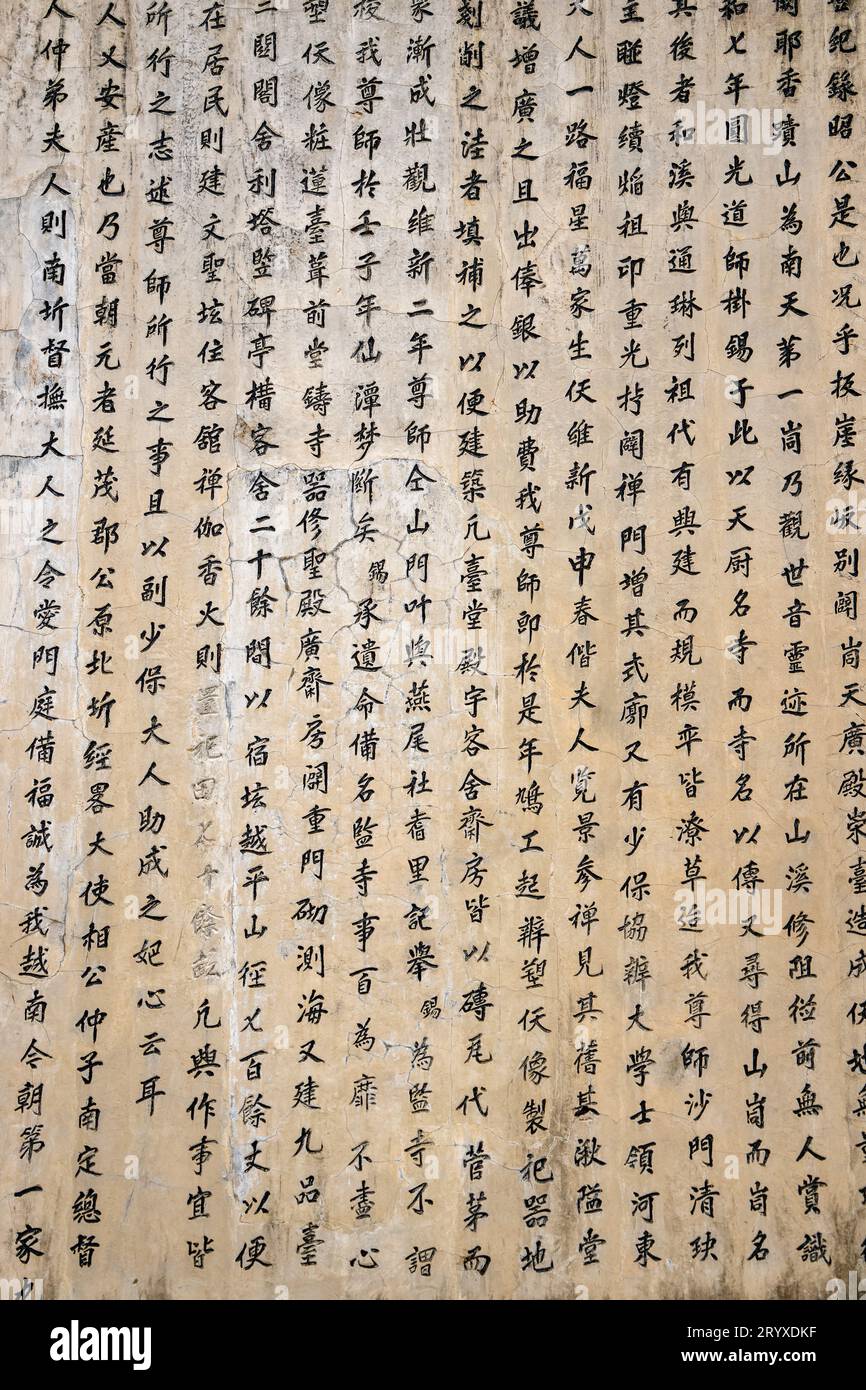 紀錄昭公是也况乎扳崖緣㟁别闢峝天廣殿崇臺造成伕地無
耶香蹟山為南天苐一峝乃觀世音靈迹所在山溪修阻徃前無人賞識
和七年圓光道師掛錫于此以天厨名寺而寺名以傳又尋得山峝而峝名
其後者和溪與通琳列祖代有興建而規模卒皆潦草迨我尊師沙門清玦
主𥅾燈續焰祖印重光拧闢禅門增其式廓又有少保協辦大學士領河東
大人一路福星萬家生伕維新戊申春偕夫人览景参禅見其舊基湫隘堂
議增廣之且出俸銀以助費我尊師即於是年鳩工起辦塑伕像製祀器地
剗削之洼者填補之以便建築凡臺堂殿宇客舍齋房皆以磚瓦代菅茅而
漸成壯觀維新二年尊師仝山門叶與燕尾社耆里記舉錫為監寺不謂
我尊師於壬子年仙潭梦斷矣錫承遺命備名監寺事百為靡不盡心
塑伕像粧蓮臺葺前堂鑄寺器修聖殿廣齋房闢重門砌測海又建九品臺
二閎閣舍利塔竖碑亭構客舍二十餘間以宿坛越平山徑七百餘丈以便
在居民則建文聖坛住客舘禅伽香火則置祀田餘凡興作事宜皆
所行之志述尊師所行之事且以副少保大人助成之妃心云耳
人又安産也乃當朝元者延茂郡公原北圻經畧大使相公仲子南定總督
人仲弟夫人則南圻督撫大人之令愛門庭備福誠為我越南今朝第一家
alamy
Image ID: 2RYXDKF
www.alamy.com